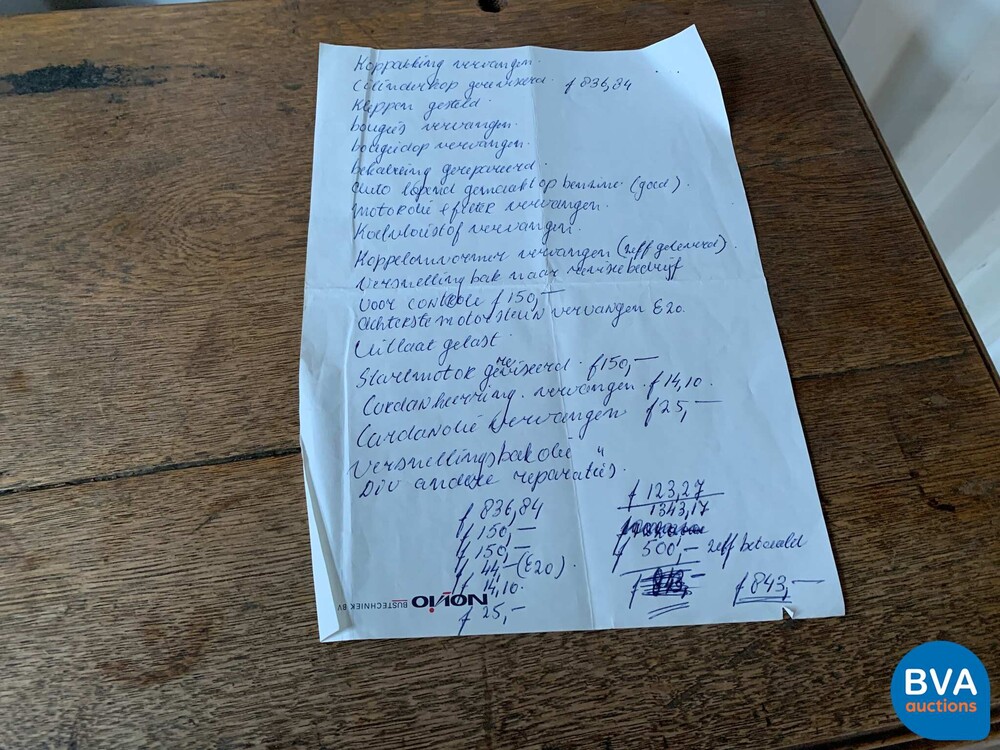 Koppakking vervangen.
Cilinderkop gereviseerd. f 836,84
Kleppen gesteld.
bougies vervangen.
bougiedop vervangen.
bekabeling gerepareerd.
auto lopend gemaakt op benzine (goed).
motorolie & filter vervangen.
Koelvloeistof vervangen.
Koppelomvormer vervangen (zelf geleverd).
Versnellingbak naar revisiebedrijf
voor controle f 150,—
achterste motorsteun vervangen £20.
Uitlaat gelast.
Startmotor gereviseerd. f 150,—
Cardankeerring. vervangen. f 14,10.
Cardanolie vervangen f 25,—
Versnellingsbakolie "
Div andere reparaties.
f 836,84
f 150,—
f 150,—
f 44,— (£20).
f 14,10.
f 25,—
f 123,27
1343,17
f 500,— zelf betaald
f 843,—
NOVIO BUSTECHNIEK BV
BVA
auctions